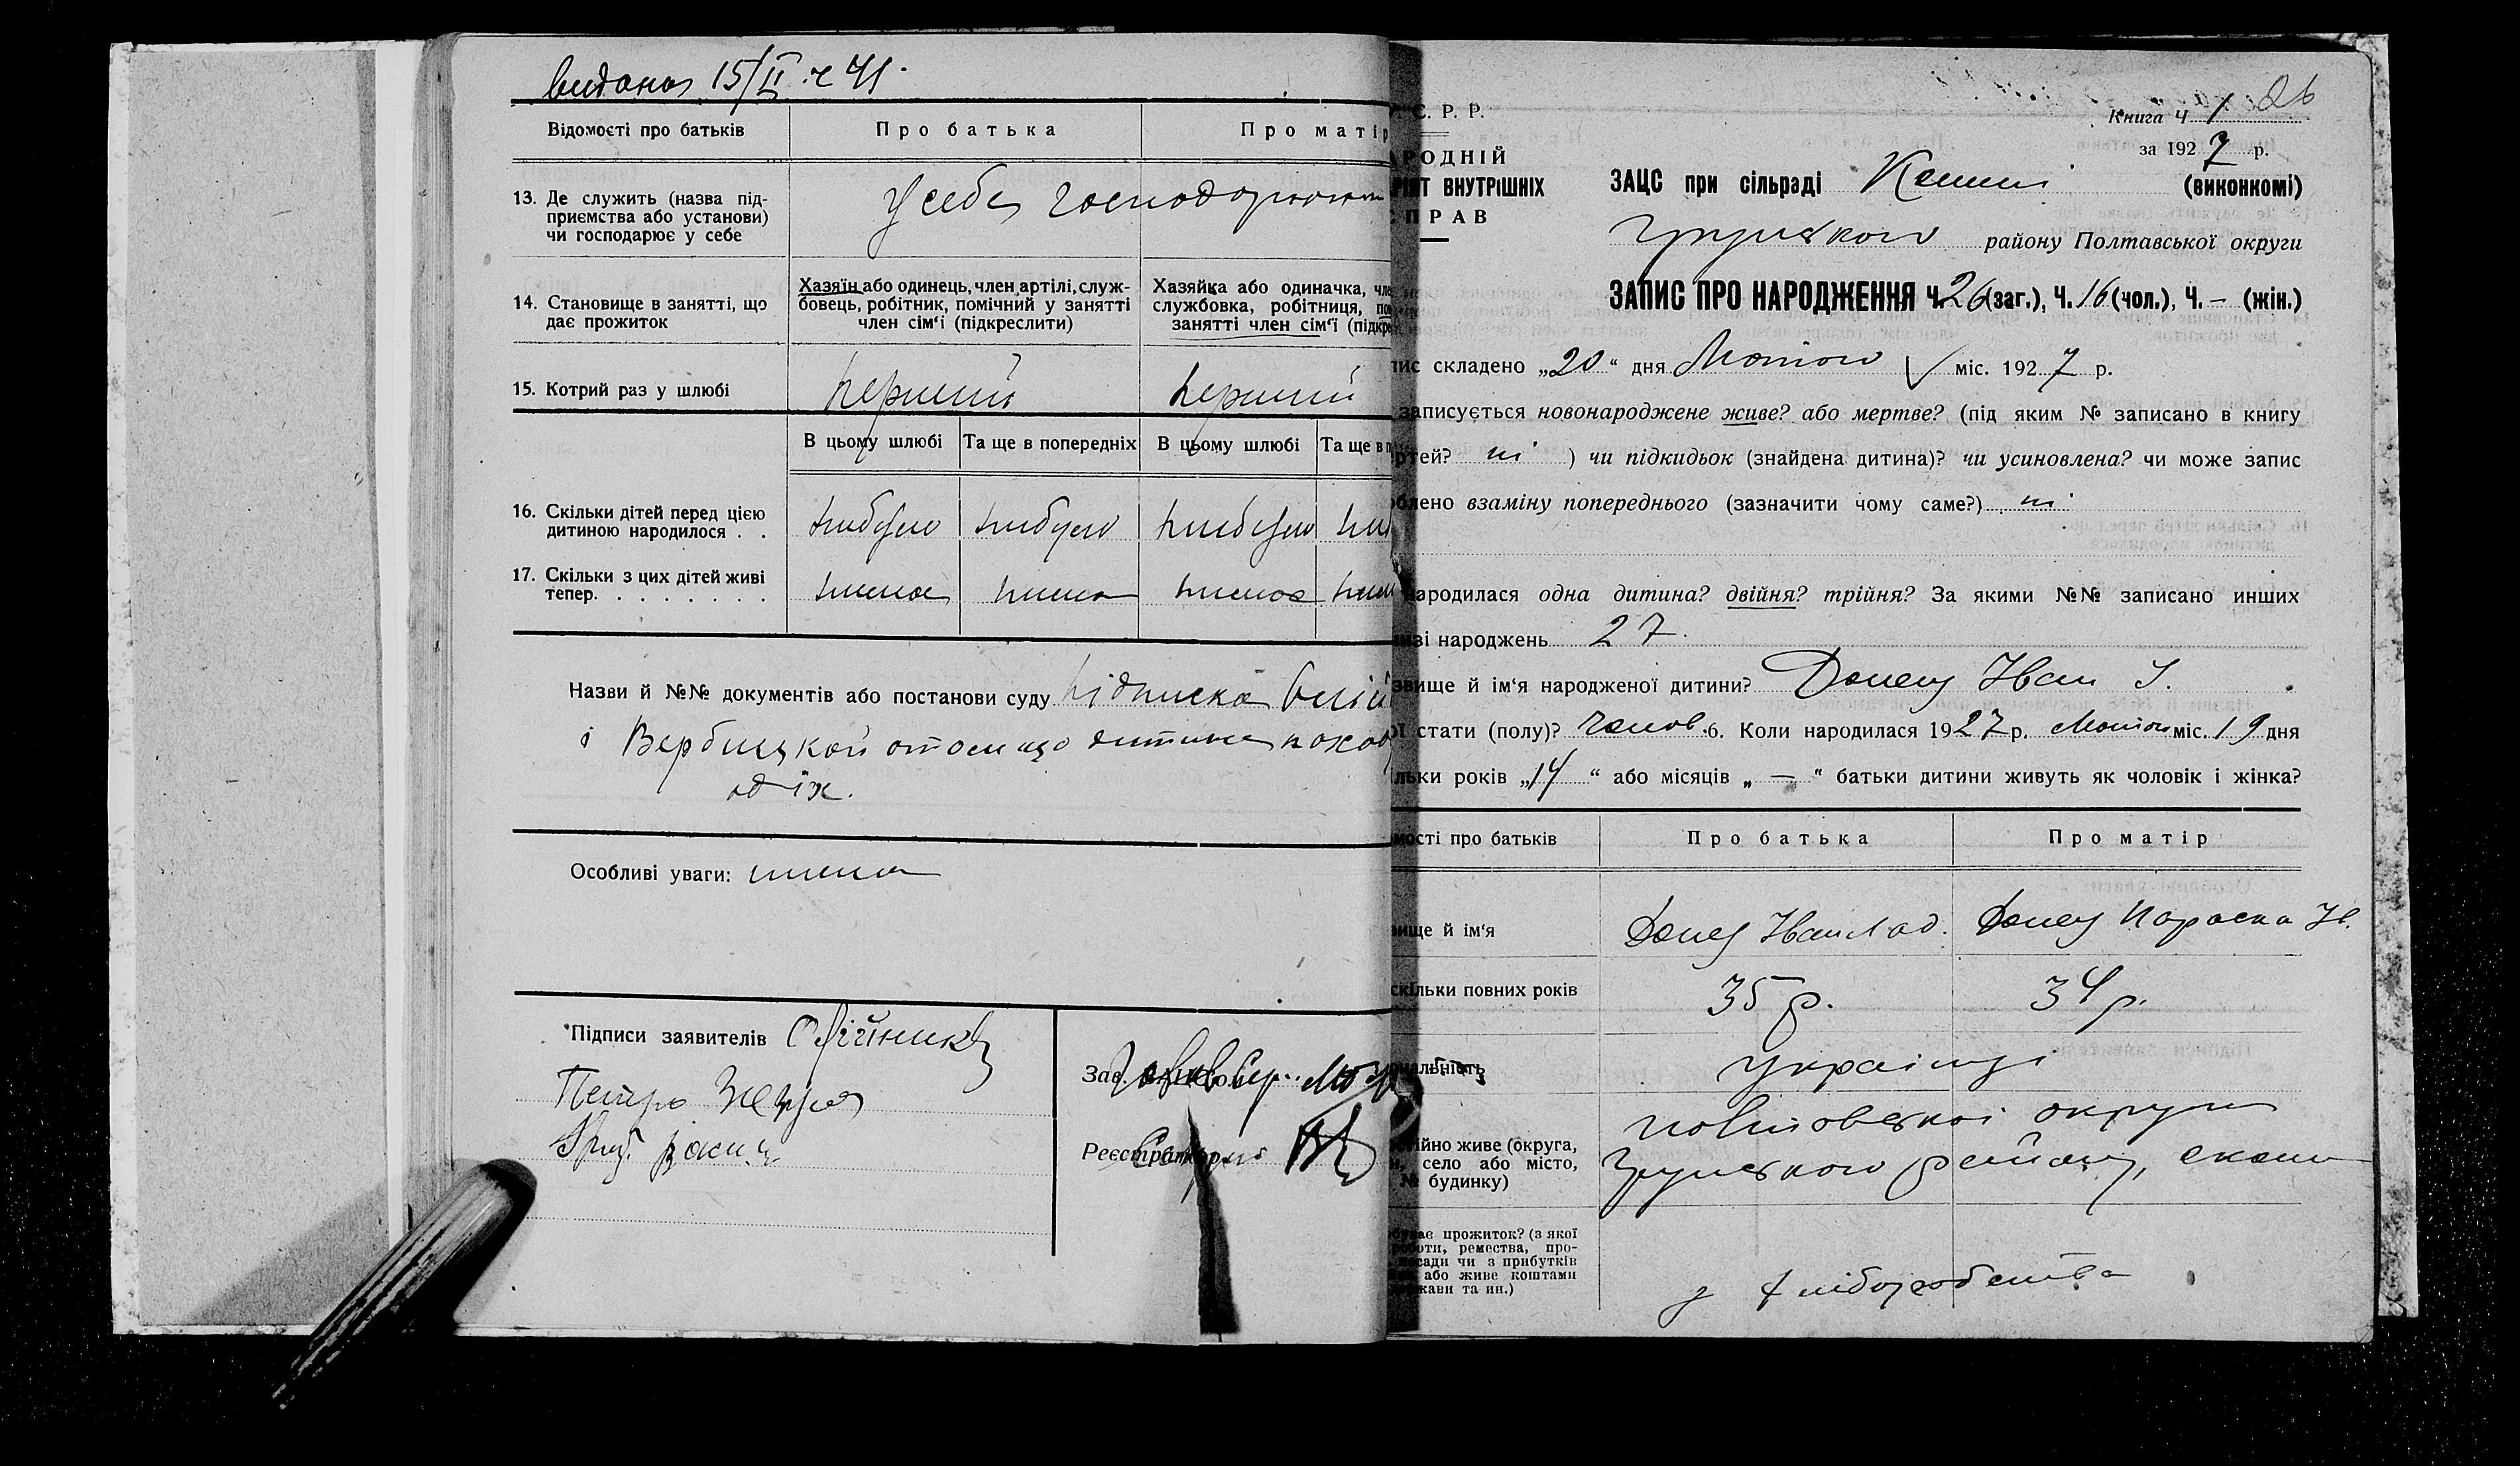 видана 15/II 41.
Відомості про батьків
Про батька
Про матір
13. Де служить (назва під-
приємства або установи)
чи господарює у себе
У себе господарюють
14. Становище в занятті, що
дає прожиток
Хазяїн або одинець, член артілі, служ-
бовець, робітник, помічний у занятті
член сім‘ї (підкреслити)
Хазяйка або одиначка, чле
службовка, робітниця, по
занятті член сім‘ї (підкре
15. Котрий раз у шлюбі
перший
перший
В цьому шлюбі
Та ще в попередніх
В цьому шлюбі
Та ще в п
16. Скільки дітей перед цією
дитиною народилося . .
небуло
небуло
небуло
17. Скільки з цих дітей живі
тепер. . . . . . . .
нема
нема
нема
Назви й №№ документів або постанови суду підписка
і Вербицкой отом що дитина
од їх.
Особливі уваги: нема
Підписи заявителів Олійник
Петро
Зав.
Реєстратор
С. Р. Р.
РОДНІЙ
ВНУТРІШНІХ
ПРАВ
26
Книга Ч 1
за 1927 р.
ЗАЦС при сільраді (виконкомі)
району Полтавської округи
ЗАПИС ПРО НАРОДЖЕННЯ Ч. 26 (заг.), Ч. 16 (чол.), Ч. – (жін.)
складено „20“ дня Лютого міс. 1927 р.
записується новонароджене живе? або мертве? (під яким № записано в книгу
ртей? ні ) чи підкидьок (знайдена дитина)? чи усиновлена? чи може запис
блено взаміну попереднього (зазначити чому саме?) ні
ародилася одна дитина? двійня? трійня? За якими №№ записано инших
зі народжень 27.
звище й ім‘я народженої дитини? Донец Іван І.
стати (полу)? чолов. 6. Коли народилася 1927 р. Лютого міс. 19 дня
льки років „14“ або місяців „—“ батьки дитини живуть як чоловік і жінка?
мості про батьків
Про батька
Про матір
ище й ім‘я
Донец Іван
Донец Параска Ів.
скільки повних років
35 р.
34 р.
нальність
українці
ійно живе (округа,
село або місто,
№ будинку)
Полтавської округи
району,
ває прожиток? (з якої
роботи, ремества, про-
сади чи з прибутків
або живе коштами
жави та ин.)
з хліборобства